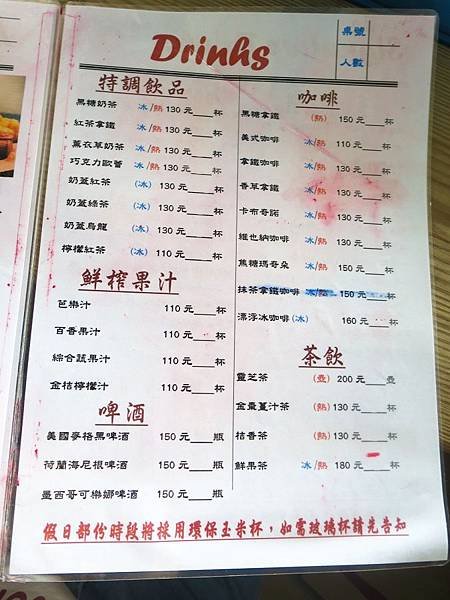 Drinks
桌號
人數
特調飲品
黑糖奶茶 冰/熱 130 元___杯
紅茶拿鐵 冰/熱 130 元___杯
薰衣草奶茶 冰/熱 130 元___杯
巧克力歐蕾 冰/熱 130 元___杯
奶蓋紅茶 (冰) 130 元___杯
奶蓋綠茶 (冰) 130 元___杯
奶蓋烏龍 (冰) 130 元___杯
檸檬紅茶 (冰) 110 元___杯
鮮榨果汁
芭樂汁 110 元___杯
百香果汁 110 元___杯
綜合蔬果汁 110 元___杯
金桔檸檬汁 110 元___杯
啤酒
美國麥格黑啤酒 150 元___瓶
荷蘭海尼根啤酒 150 元___瓶
墨西哥可樂娜啤酒 150 元___瓶
咖啡
黑糖拿鐵 (熱) 150 元___杯
美式咖啡 冰/熱 110 元___杯
拿鐵咖啡 冰/熱 130 元___杯
香草拿鐵 冰/熱 130 元___杯
卡布奇諾 冰/熱 130 元___杯
維也納咖啡 冰/熱 130 元___杯
焦糖瑪奇朵 冰/熱 150 元___杯
抹茶拿鐵咖啡 冰/熱 150 元___杯
漂浮冰咖啡 (冰) 160 元___杯
茶飲
靈芝茶 (壺) 200 元___壺
金棗薑汁茶 (熱) 130 元___杯
桔香茶 (熱) 130 元___杯
鮮果茶 冰/熱 180 元___杯
假日部份時段將採用環保玉米杯，如需玻璃杯請先告知